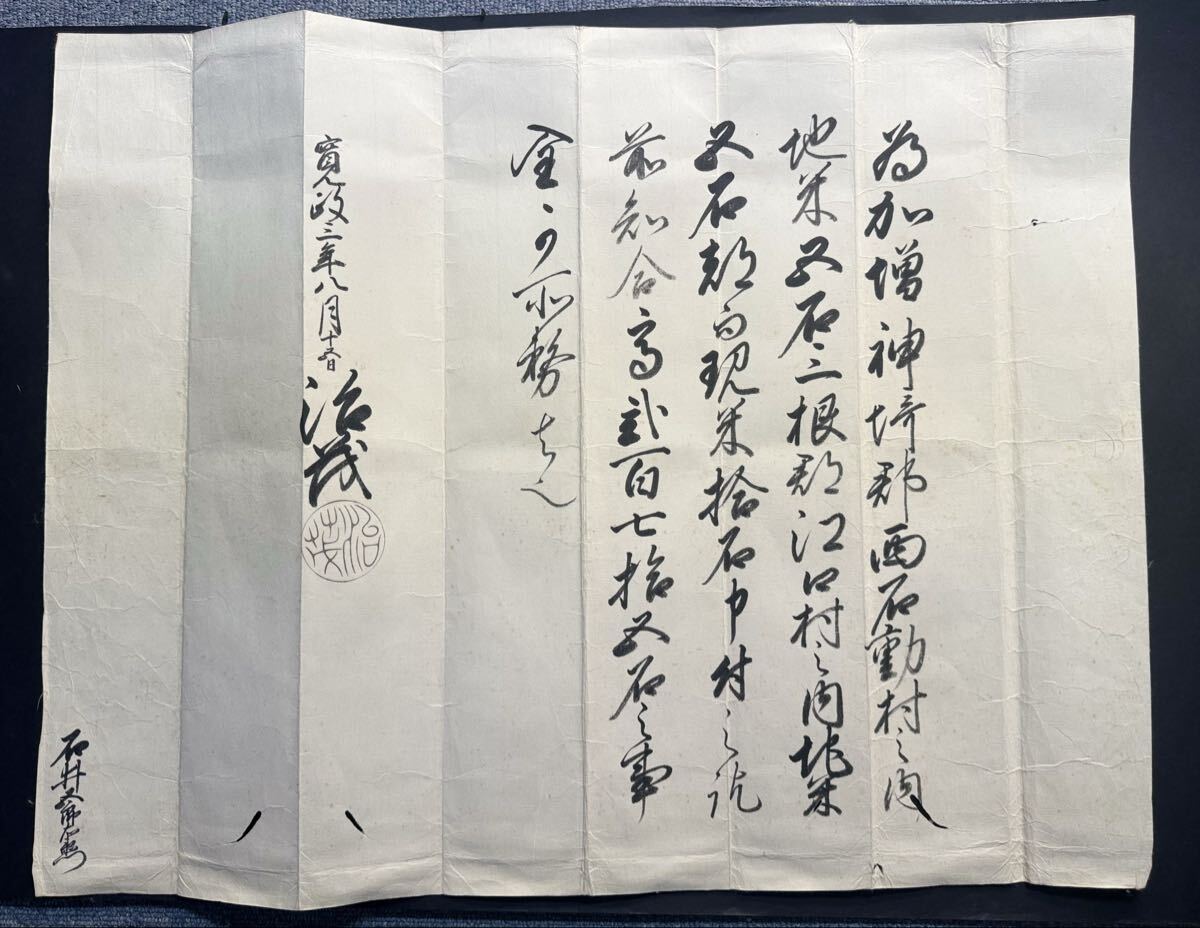 為加増神埼郡西石動村之内
地米五石三根郡江口村之内地米
五石都而現米拾石申付之訖
前知合高弐百七拾五石之事
全可所務者也
寛政三年八月十五日
治茂
治茂
石井又右衛門